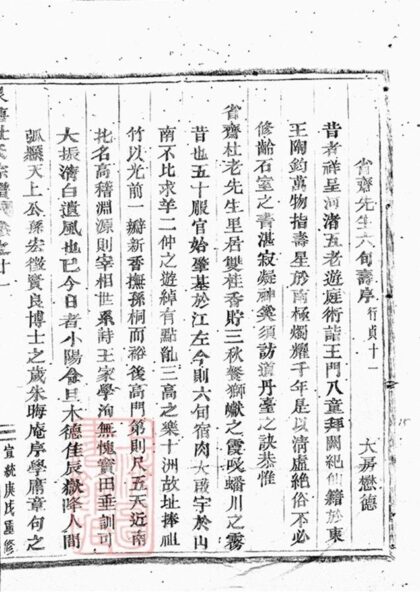 省齋先生六旬壽序 行貞十一
大房懋德
昔者祥呈河渚五老遊庭術詣王門八童拜闕絶仙籍於東
王陶鈞萬物指壽星於南極燭耀千年是以清虛絶俗不必
修齡石室之青湛寂凝神奚須訪道丹臺之訣恭惟
省齋杜老先生里居雙桂香貯三秋餐獅巘之霞吸蟠川之霧
昔也五十服官始肇基於江左今則六旬宿肉大啟宇於山
南不比求羊二仲之遊綽有點亂三高之樂十洲故址捧祖
竹以光前一瓣新香撫孫桐而裕後高門第則尺五天近南
北名高稽淵源則宰相世系詩王家學洵無愧寶田垂訓可
大振清白遺風也已今日者小陽食旦木德佳辰嶽降人間
弧懸天上公孫宏徵賢良博士之歲朱晦庵序學庸章句之
宣統庚戌重修